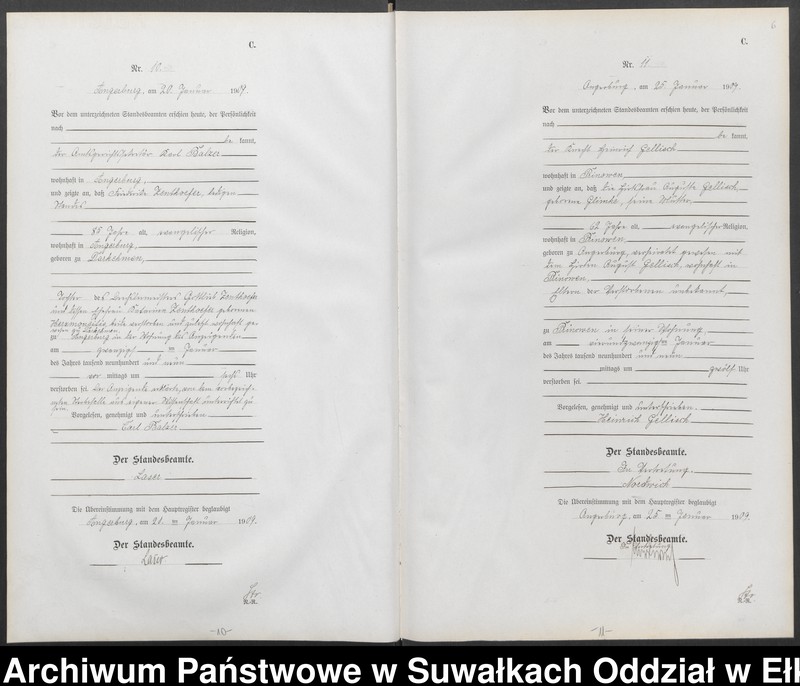 C.
Nr. 10
Angerburg, am 20. Januar 1909.
Vor dem unterzeichneten Standesbeamten erschien heute, der Persönlichkeit
nach
be kannt,
der Karl Balzer
wohnhaft in Angerburg,
und zeigte an, daß Friederike ledigen
Standes
85 Jahre alt, evangelischer Religion,
wohnhaft in Angerburg,
geboren zu Darkehmen,
Tochter des Gottlieb
und dessen Ehefrau geborenen
beide verstorben und zuletzt wohnhaft ge-
zu Angerburg in der Wohnung des Anzeigenden
am zwanzigsten Januar
des Jahres tausend neunhundert und neun
vor mittags um sechs Uhr
verstorben sei. Der Anzeigende erklärte, von dem
aus eigener Wissenschaft unterrichtet zu
sein.
Vorgelesen, genehmigt und unterschrieben
Carl Balzer
Der Standesbeamte.
Laser
Die Übereinstimmung mit dem Hauptregister beglaubigt
Angerburg, am 20. ten Januar 1909.
Der Standesbeamte.
Laser
K.-R.
-10-
6
C.
Nr. 11
Angerburg, am 25. Januar 1909.
Vor dem unterzeichneten Standesbeamten erschien heute, der Persönlichkeit
nach
be kannt,
der Knecht Heinrich Gellisch
wohnhaft in Kinowen,
und zeigte an, daß die Hirtsfrau Auguste Gellisch
geborene seine Mutter
62 Jahre alt, evangelischer Religion,
wohnhaft in Kinowen,
geboren zu Angerburg, verheiratet gewesen mit
dem Hirten August Gellisch, wohnhaft in
Kinowen,
Eltern der Verstorbenen unbekannt,
zu Kinowen in seiner Wohnung
am einundzwanzigsten Januar
des Jahres tausend neunhundert und neun
mittags um zwölf Uhr
verstorben sei.
Vorgelesen, genehmigt und unterschrieben.
Heinrich Gellisch
Der Standesbeamte.
In Vertretung.
Die Übereinstimmung mit dem Hauptregister beglaubigt
Angerburg, am 25 ten Januar 1909.
Der Standesbeamte.
In Vertretung
K.-R.
-11-
Archiwum Państwowe w Suwałkach Oddział w Ełk